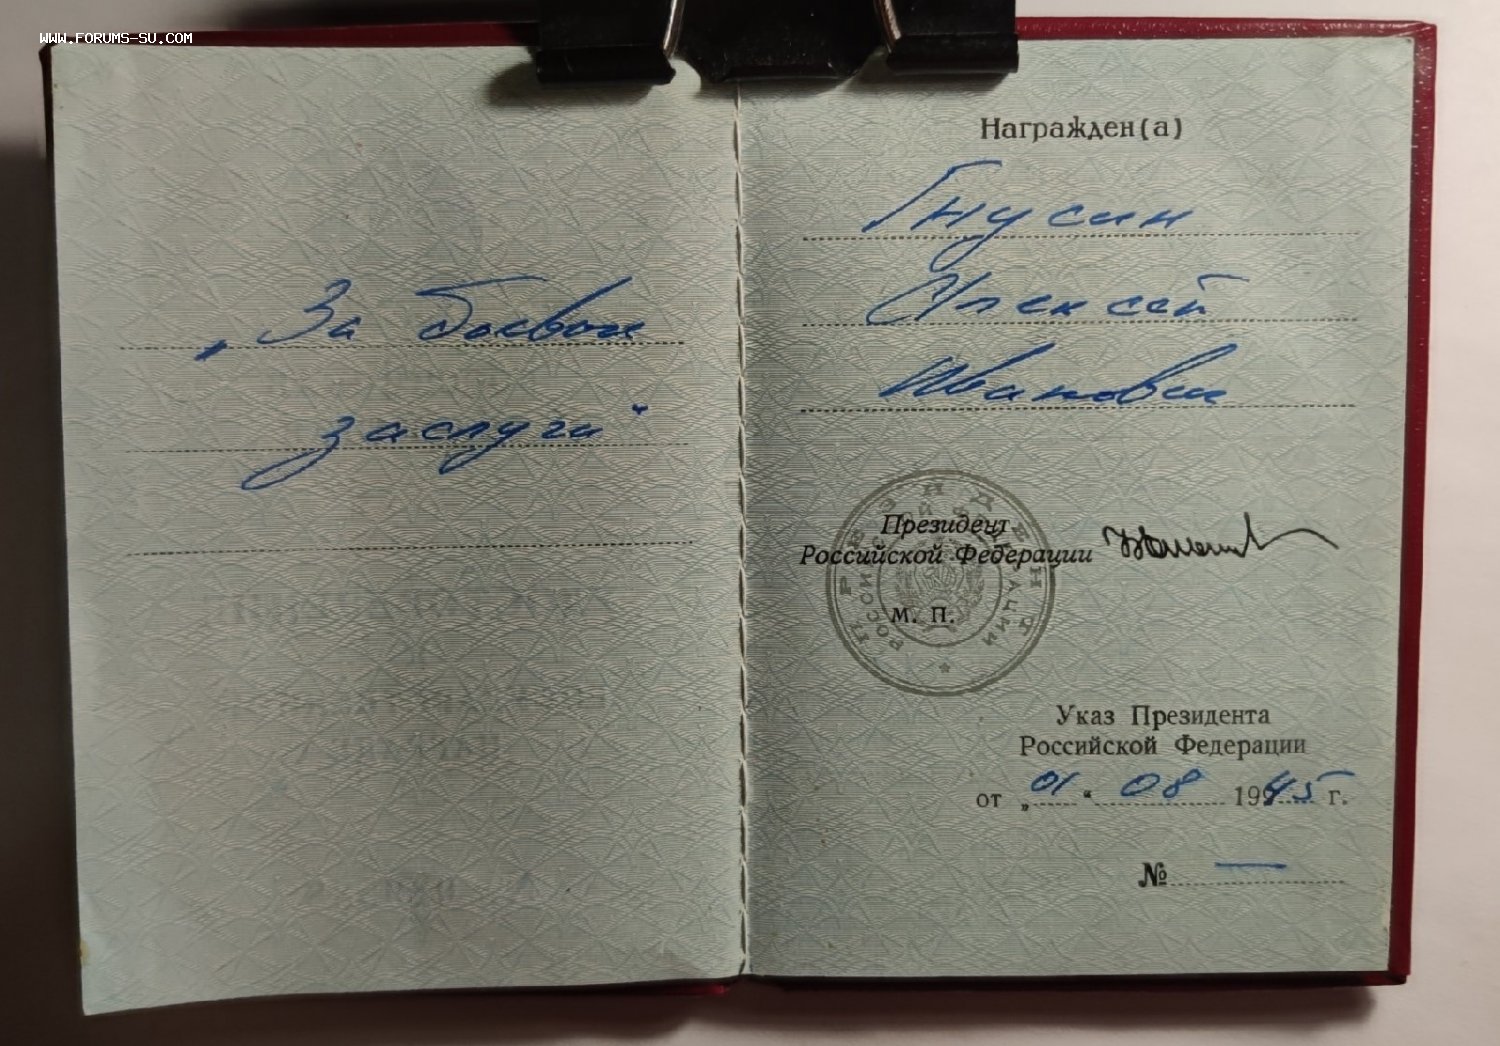 WWW.FORUMS-SU.COM
„За боевые
заслуги“
Награжден(а)
Гнусин
Алексей
Иванович
ПРЕЗИДЕНТ
РОССИЙСКОЙ ФЕДЕРАЦИИ
Президент
Российской Федерации
М. П.
Указ Президента
Российской Федерации
от „01“ 08 1945 г.
№ —